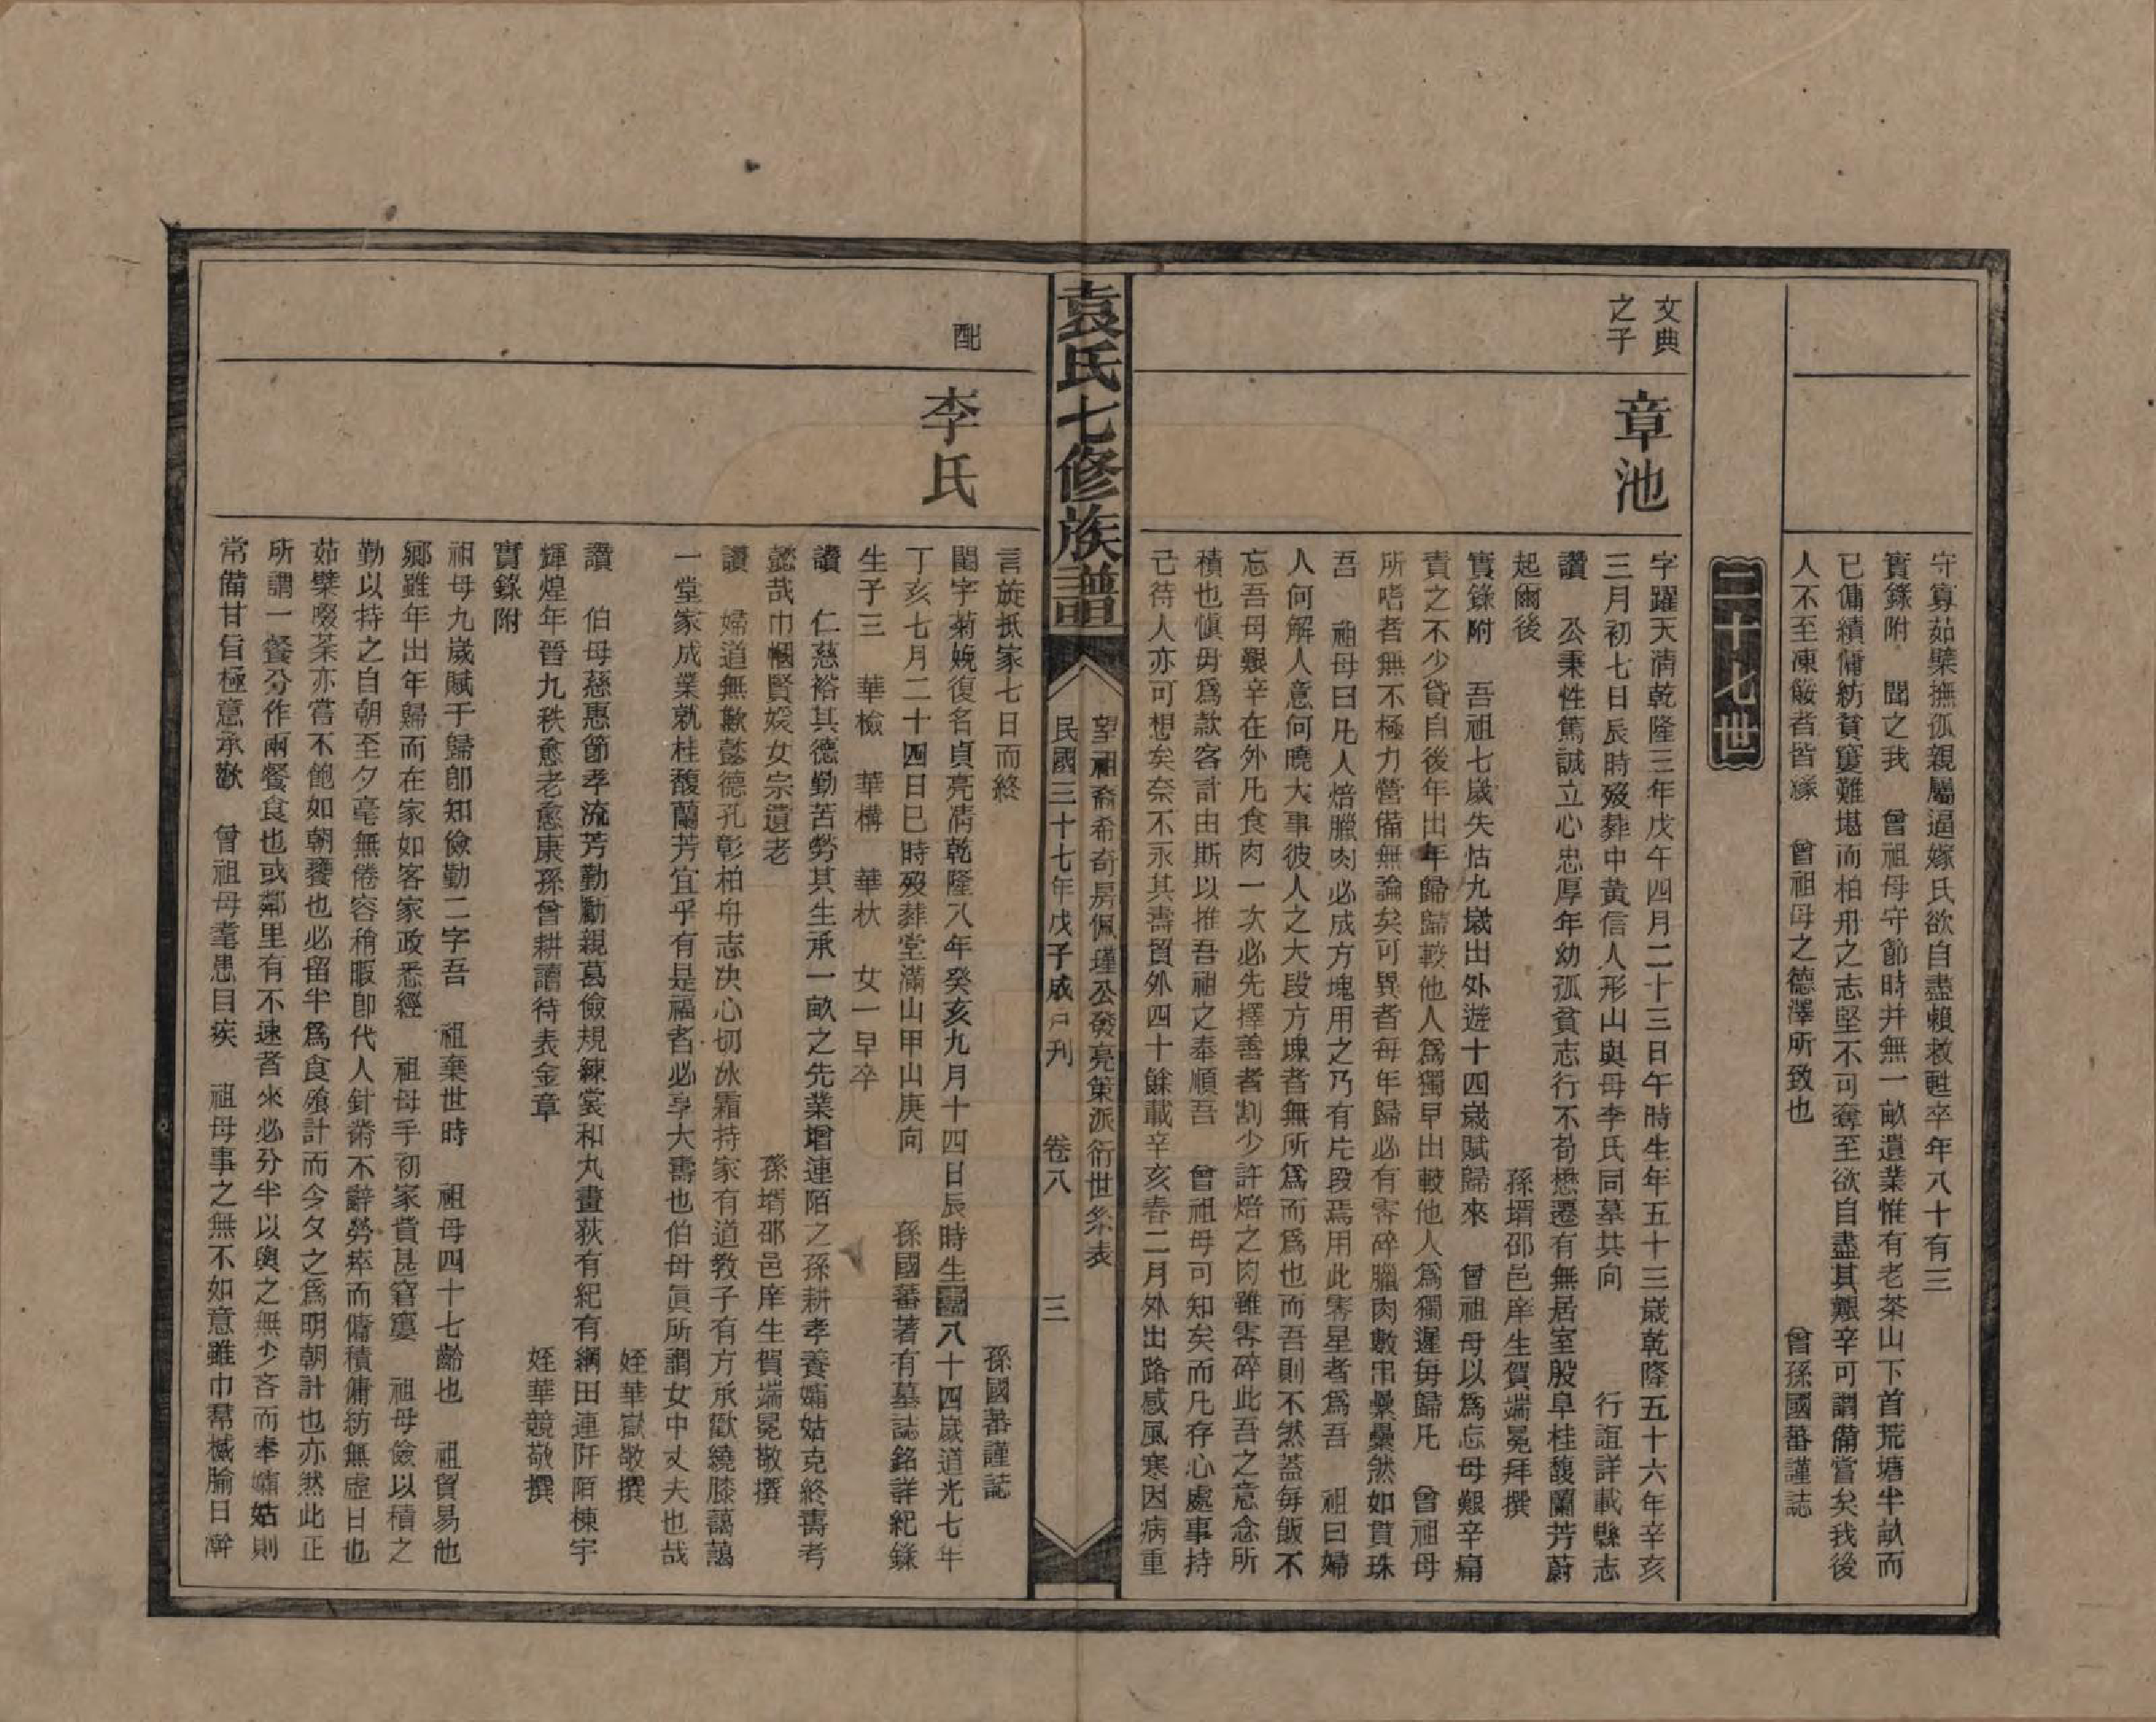 守寡茹檗撫孤親屬逼嫁氏欲自盡賴救甦卒年八十有三
實錄附　聞之我　曾祖母守節時并無一畝遺業惟有老茶山下首荒塘半畝而
已傭績傭紡貧窶難堪而柏舟之志堅不可奪至欲自盡其艱辛可謂備嘗矣我後
人不至凍餒者皆緣　曾祖母之德澤所致也　曾孫國蕃謹誌
二十七世
文典之子
章池
字躍天淸乾隆三年戊午四月二十三日午時生年五十三歲乾隆五十六年辛亥
三月初七日辰時歿葬中黃信人形山與母李氏同墓共向　行誼詳載縣志
讚　公秉性篤誠立心忠厚年幼孤貧志行不苟懋遷有無居室殷阜桂馥蘭芳蔚
起爾後　孫壻邵邑庠生賀端冕拜撰
實錄附　吾祖七歲失怙九歲出外遊十四歲賦歸來　曾祖母以爲忘母艱辛痛
責之不少貸自後年出年歸歸較他人爲獨早出較他人爲獨遲每歸凡　曾祖母
所嗜者無不極力營備無論矣可異者每年歸必有零碎臘肉數串纍纍然如貫珠
吾　祖母曰凡人焙臘肉必成方塊用之乃有片段焉用此零星者爲吾　祖曰婦
人何解人意何曉大事彼人之大段方塊者無所爲而爲也而吾則不然蓋每飯不
忘吾母艱辛在外凡食肉一次必先擇善者割少許焙之肉雖零碎此吾之意念所
積也愼毋爲款客計由斯以推吾祖之奉順吾　曾祖母可知矣而凡存心處事持
己待人亦可想矣奈不永其壽貿外四十餘載辛亥春二月外出路感風寒因病重
袁氏七修族譜
望祖裔希奇房佩瑾公發亮策派衍世系表
民國三十七年戊子歲　刊　卷八　三
言旋抵家七日而終　孫國蕃謹誌
配
李氏
閨字菊娩復名貞亮淸乾隆八年癸亥九月十四日辰時生壽八十四歲道光七年
丁亥七月二十四日巳時歿葬堂滿山甲山庚向　孫國蕃著有墓誌銘詳紀錄
生子三　華檢　華構　華狀　女一早卒
讚　仁慈裕其德勤苦勞其生承一畝之先業增連陌之孫耕孝養孀姑克終壽考
懿哉巾幗賢媛女宗遺老　孫壻邵邑庠生賀端冕敬撰
讚　婦道無歉懿德孔彰柏舟志决心切氷霜持家有道敎子有方承歡繞膝藹藹
一堂家成業就桂馥蘭芳宜乎有是福者必享大壽也伯母眞所謂女中丈夫也哉
姪華嶽敬撰
讚　伯母慈惠節孝流芳勤勵親葛儉規練裳和丸畫荻有紀有綱田連阡陌棟宇
輝煌年晉九秩愈老愈康孫曾耕讀待表金章　姪華競敬撰
實錄附
祖母九歲賦于歸卽知儉勤二字吾　祖棄世時　祖母四十七齡也　祖貿易他
鄕雖年出年歸而在家如客家政悉經　祖母手初家貲甚窘窶　祖母儉以積之
勤以持之自朝至夕毫無倦容稍暇卽代人針黹不辭勞瘁而傭積傭紡無虛日也
茹檗啜茶亦嘗不飽如朝饔也必留半爲食飧計而今夕之爲明朝計也亦然此正
所謂一餐分作兩餐食也或鄰里有不速者來必分半以與之無少吝而奉孀姑則
常備甘旨極意承歡　曾祖母耄患目疾　祖母事之無不如意雖巾帚椷腧日澣